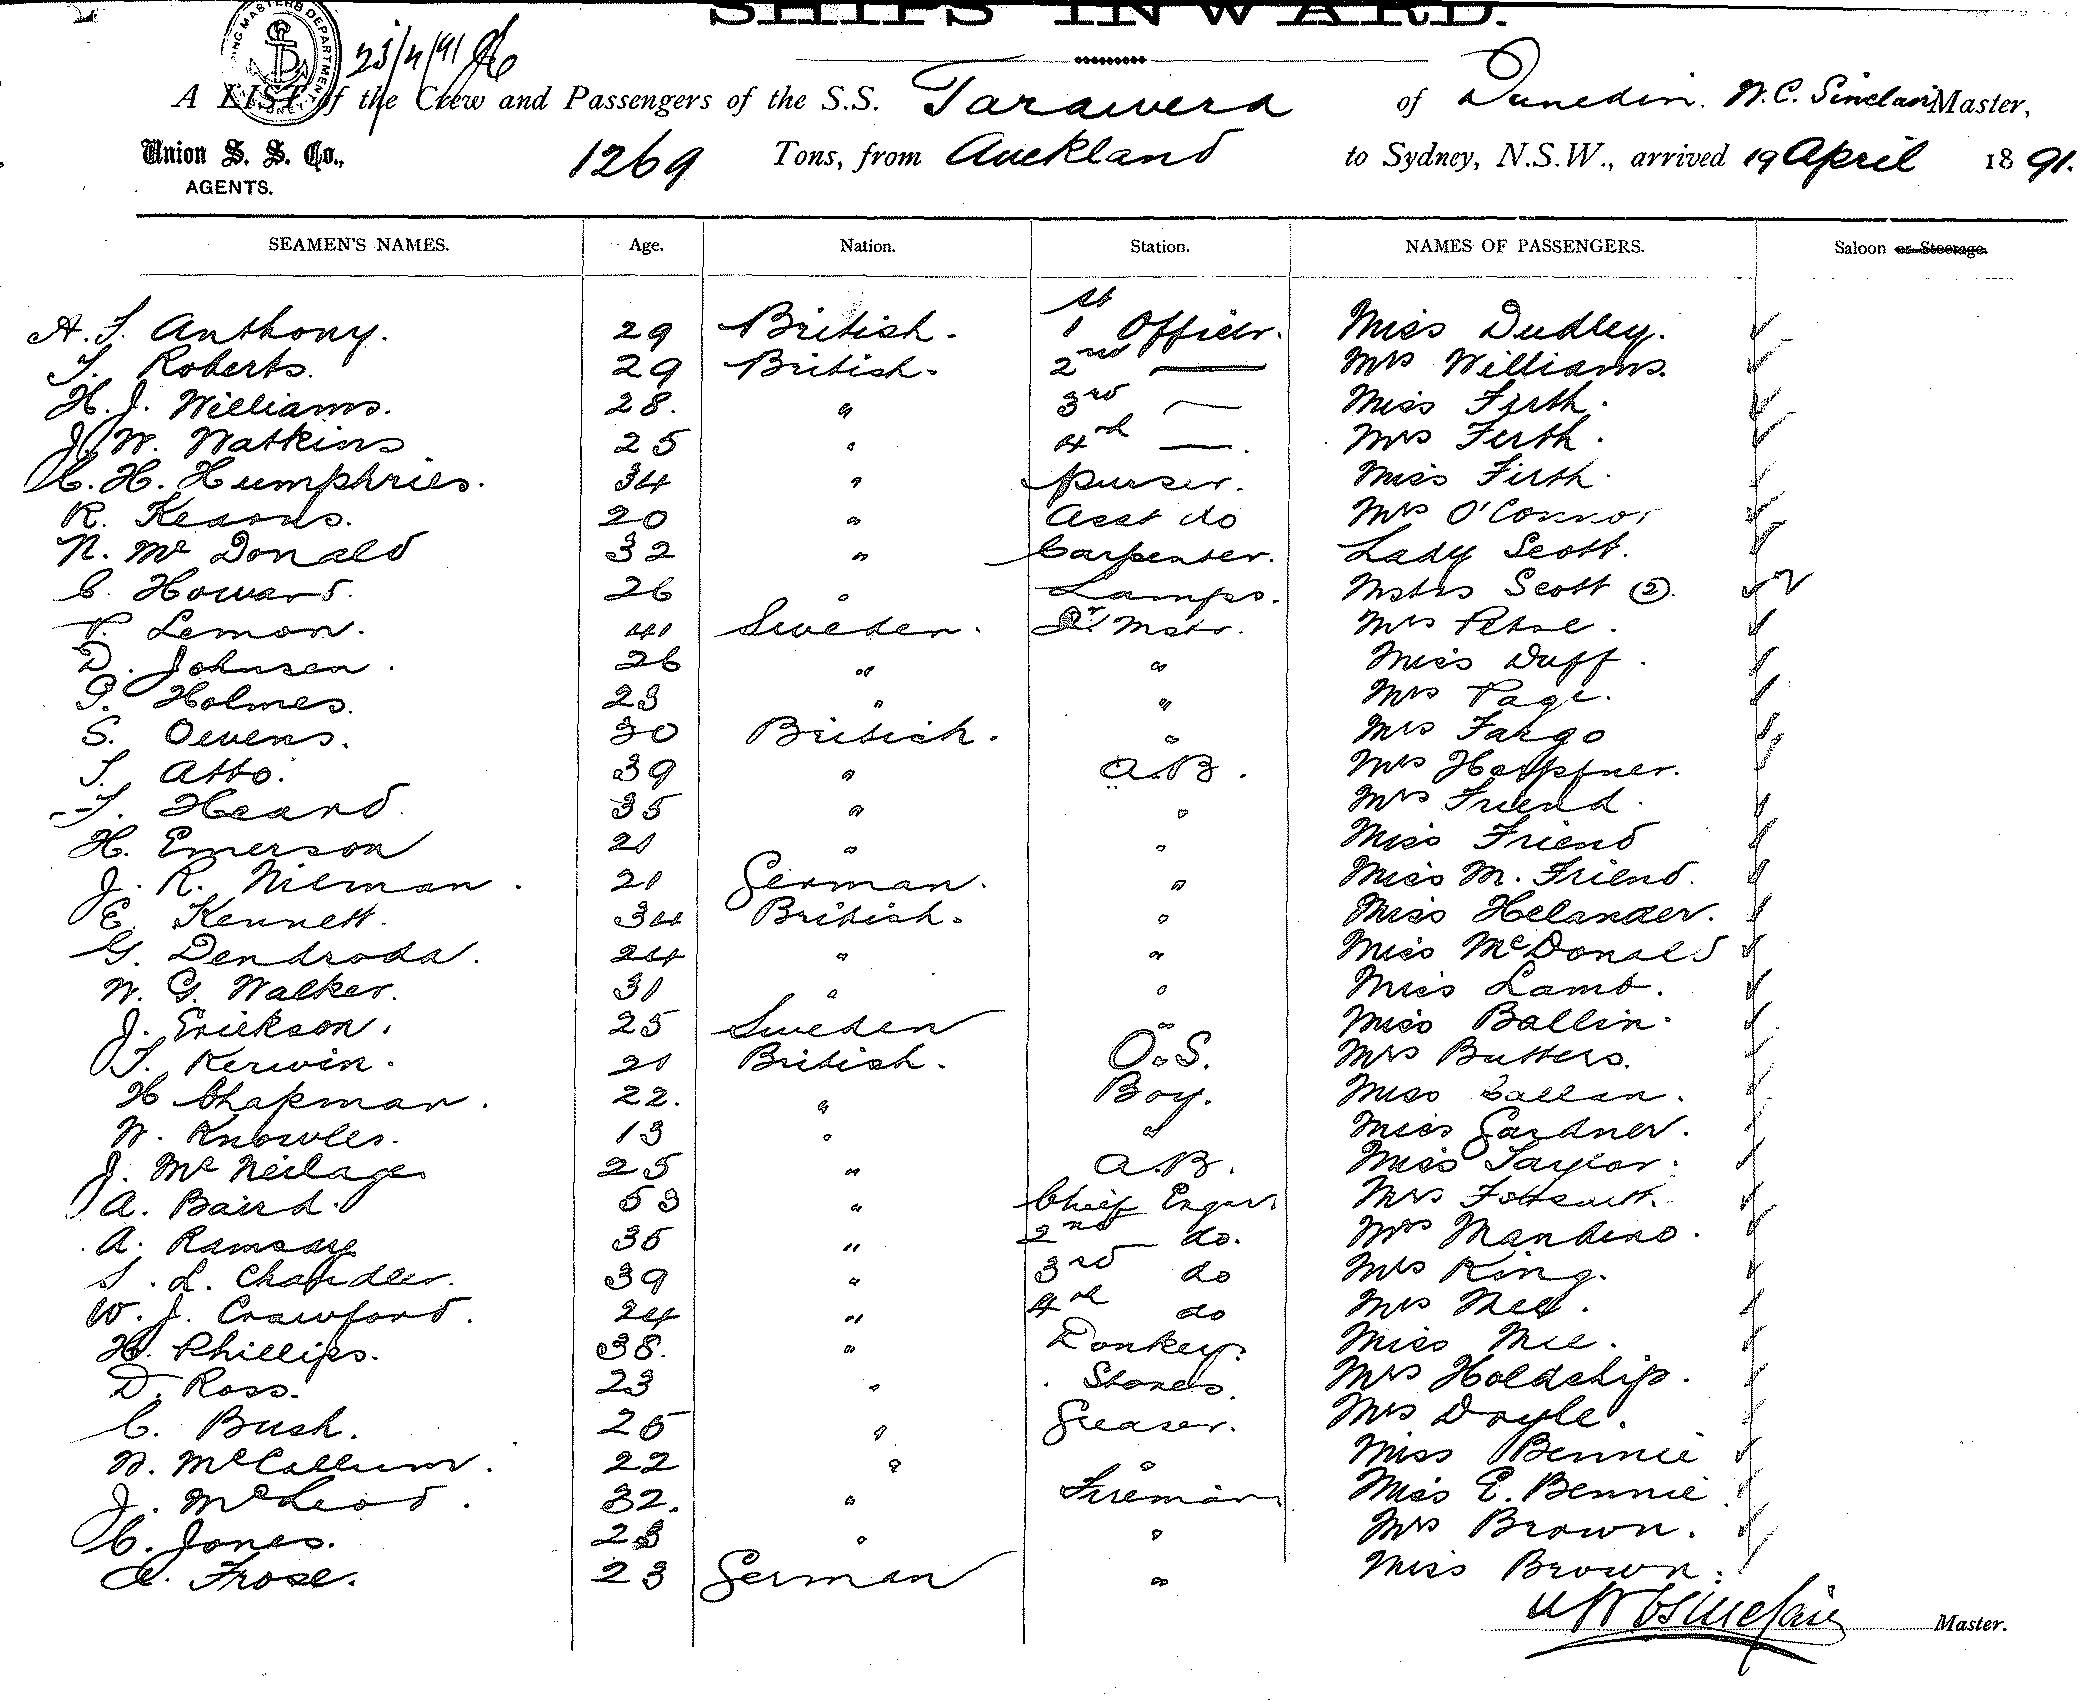 SHIPS INWARD.
23/4/91
A LIST of the Crew and Passengers of the S.S. Tarawera of Dunedin. W.C. Sinclair Master,
Union S. S. Co., 1269 Tons, from Auckland to Sydney, N.S.W., arrived 19 April 1891.
AGENTS.
SEAMEN'S NAMES. Age. Nation. Station. NAMES OF PASSENGERS. Saloon or Steerage.
Anthony. 29 British. 1st Officer. Miss Dudley.
Roberts. 29 British. 2nd — Mrs Williams.
H. J. Williams. 28. " 3rd — Miss Firth.
J. W. Watkins 25 " 4th —. Mrs Firth.
C. H. Humphries. 34 " Purser. Miss Firth.
R. 20 " Asst do Mrs O'Connor
N. Mc Donald 32 " Carpenter. Lady Scott.
C. Howard. 26 " Lamps. Mstrs Scott (2).
Lemon. 41 Sweden. Qr Mstr. Mrs
D. Johnsen. 26 " " Miss Duff.
Holmes. 23 " " Mrs Page.
S. Owens. 30 British. " Mrs Fargo
Atto. 39 " A.B. Mrs
Heard 35 " " Mrs Friend.
H. Emerson 21 " " Miss Friend
J. R. Nieman. 21 German. " Miss M. Friend.
E. Kennett. 34 British. " Miss Helander.
G. 24 " " Miss McDonald
W. G. Walker. 31 " " Miss Lamb.
J. Erickson. 25 Sweden " Miss Ballin.
T. Kerwin. 21 British. O.S. Mrs Butters.
H Chapman. 22. " Boy. Miss Callan.
W. Knowles. 13 " " Miss Gardner.
J. Mc Neilage 25 " A.B. Miss Taylor.
A. Baird. 53 " Chief Engnr Mrs
A. Ramsay 35 " 2nd do. Mrs
L. Chandler. 39 " 3rd do Mrs King.
W. J. Crawford. 24 " 4th do Mrs Mee.
H. Phillips. 38. " Donkey. Miss Mee.
D. Ross. 23 " Stores. Mrs Holdship.
C. Bush. 25 " Greaser. Mrs Doyle.
N. McCallum. 22 " " Miss Bennie
J. McLeod. 32. " Fireman Miss E. Bennie.
C. Jones. 23 " " Mrs Brown.
Frose. 23 German " Miss Brown.
W C Sinclair Master.